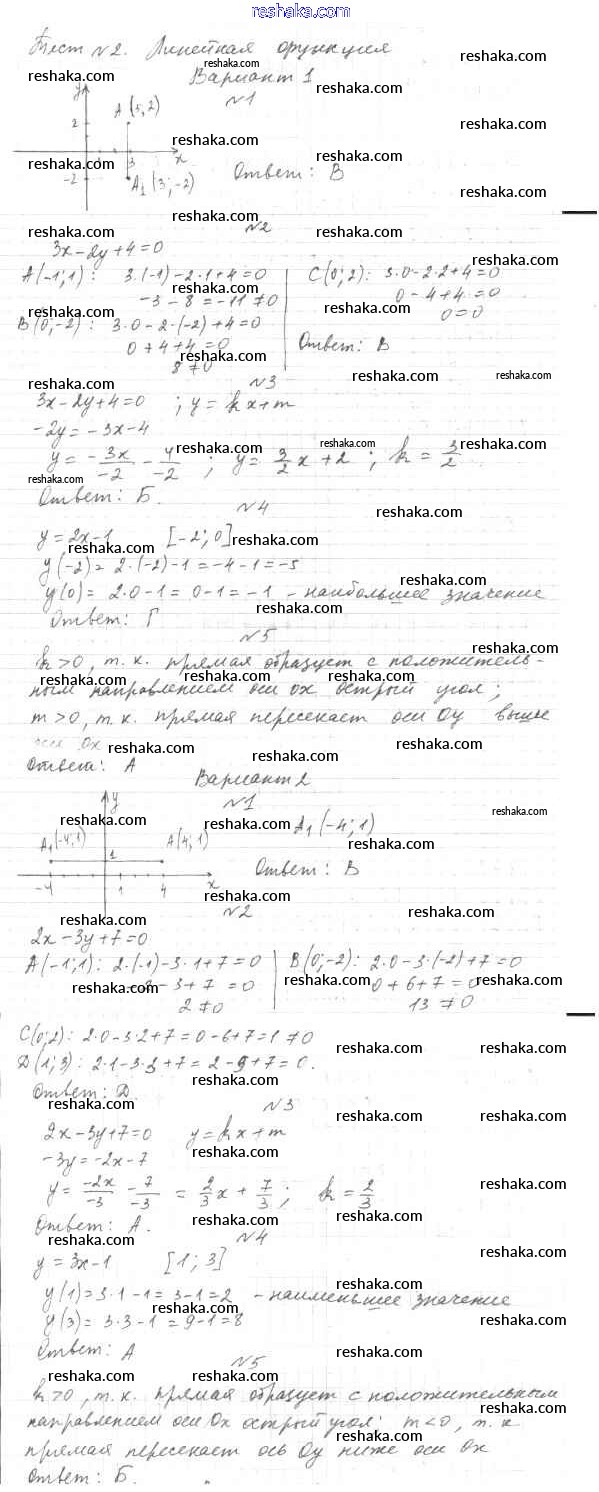 reshaka.com
Тест №2. Линейная функция
Вариант 1
№1
y
A (3; 2)
2
3
x
-2
A₁ (3; -2)
Ответ: В
№2
3x - 2y + 4 = 0
A(-1; 1): 3·(-1) - 2·1 + 4 = 0
-3 - 8 = -11 ≠ 0
B(0; -2): 3·0 - 2·(-2) + 4 = 0
0 + 4 + 4 = 0
8 ≠ 0
C(0; 2): 3·0 - 2·2 + 4 = 0
0 - 4 + 4 = 0
0 = 0
Ответ: В
№3
3x - 2y + 4 = 0 ; y = kx + m
-2y = -3x - 4
y = -3x/-2 - 4/-2 ; y = 3/2 x + 2 ; k = 3/2
Ответ: Б.
№4
y = 2x - 1 [-2; 0]
y(-2) = 2·(-2) - 1 = -4 - 1 = -5
y(0) = 2·0 - 1 = 0 - 1 = -1 - наибольшее значение
Ответ: Г
№5
k > 0, т.к. прямая образует с положитель-
ным направлением оси ох острый угол;
m > 0, т.к. прямая пересекает оси Оу выше
оси Ох
Ответ: А
Вариант 2
№1
y
A₁(-4; 1)
A(4; 1)
1
-4
1
4
x
A₁(-4; 1)
Ответ: В
№2
2x - 3y + 7 = 0
A(-1; 1): 2·(-1) - 3·1 + 7 = 0
-2 - 3 + 7 = 0
2 ≠ 0
B(0; -2): 2·0 - 3·(-2) + 7 = 0
0 + 6 + 7 = 0
13 ≠ 0
C(0; 2): 2·0 - 3·2 + 7 = 0 - 6 + 7 = 1 ≠ 0
D(1; 3): 2·1 - 3·3 + 7 = 2 - 9 + 7 = 0.
Ответ: D.
№3
2x - 3y + 7 = 0 y = kx + m
-3y = -2x - 7
y = -2x/-3 - 7/-3 = 2/3 x + 7/3 ; k = 2/3
Ответ: А.
№4
y = 3x - 1 [1; 3]
y(1) = 3·1 - 1 = 3 - 1 = 2 - наименьшее значение
y(3) = 3·3 - 1 = 9 - 1 = 8
Ответ: А
№5
k > 0, т.к. прямая образует с положительным
направлением оси Ох острый угол; m < 0, т.к.
прямая пересекает ось Оу ниже оси Ох
Ответ: Б.